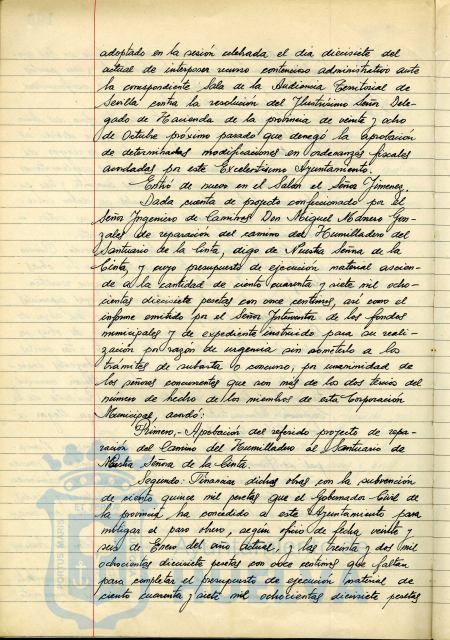 adoptado en la sesión celebrada el dia diecisiete del
actual de interponer recurso contencioso administrativo ante
la correspondiente Sala de la Audiencia Territorial de
Sevilla contra la resolución del Ilustrísimo Señor Dele-
gado de Hacienda de la provincia de veinte y ocho
de Octubre próximo pasado que denegó la aprobación
de determinadas modificaciones en ordenanzas fiscales
acordadas por este Excelentísimo Ayuntamiento.
Entró de nuevo en el Salón el Señor Jimenez.
Dada cuenta de proyecto confeccionado por el
Señor Ingeniero de Caminos Don Miguel Gon-
zales de reparación del camino del Humilladero del
Santuario de la Cinta, digo de Nuestra Señora de la
Cinta, y cuyo presupuesto de ejecución material ascien-
de a la cantidad de ciento cuarenta y siete mil ocho-
cientas diecisiete pesetas con once centimos, así como el
informe emitido por el Señor Interventor de los fondos
municipales y de expediente instruido para su reali-
zación por razón de urgencia sin someterlo a los
trámites de subasta o concurso, por unanimidad de
los señores concurrentes que son más de los dos tercios del
número de hecho de los miembros de esta Corporación
Municipal, acordó:
Primero.- Aprobación del referido proyecto de repa-
ración del Camino del Humilladero al Santuario de
Nuestra Señora de la Cinta.
Segundo: Financiar dichas obras con la subvención
de ciento quince mil pesetas que el Gobernador Civil de
la provincia, ha concedido a este Ayuntamiento para
mitigar el paro obrero, según oficio de fecha veinte y
seis de Enero del año actual, y las treinta y dos mil
ochocientas diecisiete pesetas con doce centimos que faltan
para completar el presupuesto de ejecución material de
ciento cuarenta y siete mil ochocientas diecisiete pesetas